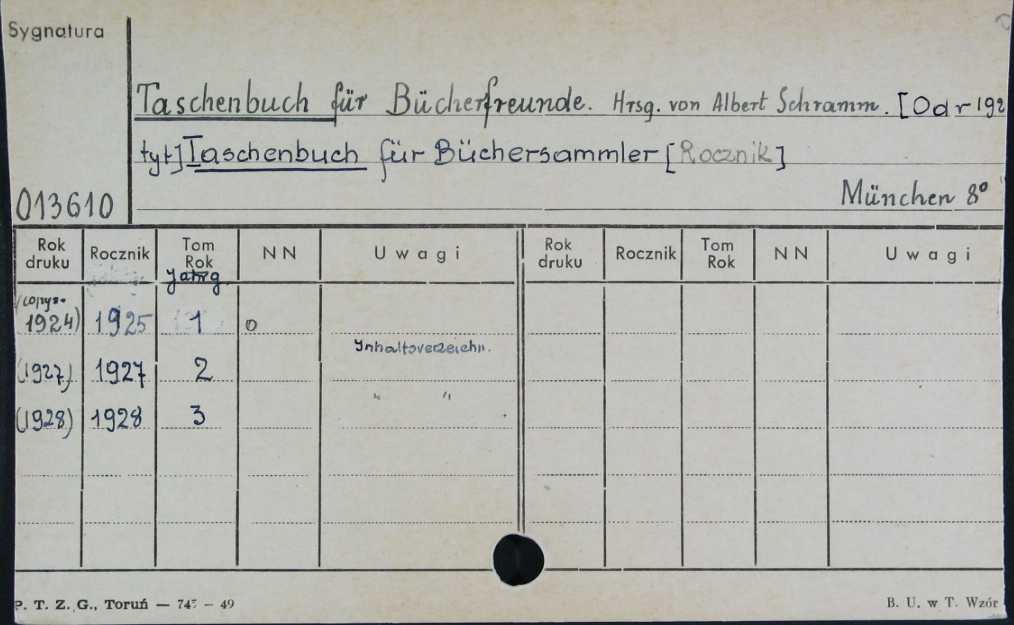 Sygnatura
Taschenbuch für Bücherfreunde. Hrsg. von Albert Schramm. [Od r 192
tyt] Taschenbuch für Büchersammler [Rocznik]
013610
München 8°
Rok druku Rocznik Tom Rok NN Uwagi Rok druku Rocznik Tom Rok NN Uwagi
Jahrg.
(copyr.
1924) 1925 1 0
Inhaltsverzeichn.
(1927) 1927 2
" "
(1928) 1928 3
P. T. Z. G., Toruń — 745 – 49
B. U. w T. Wzór